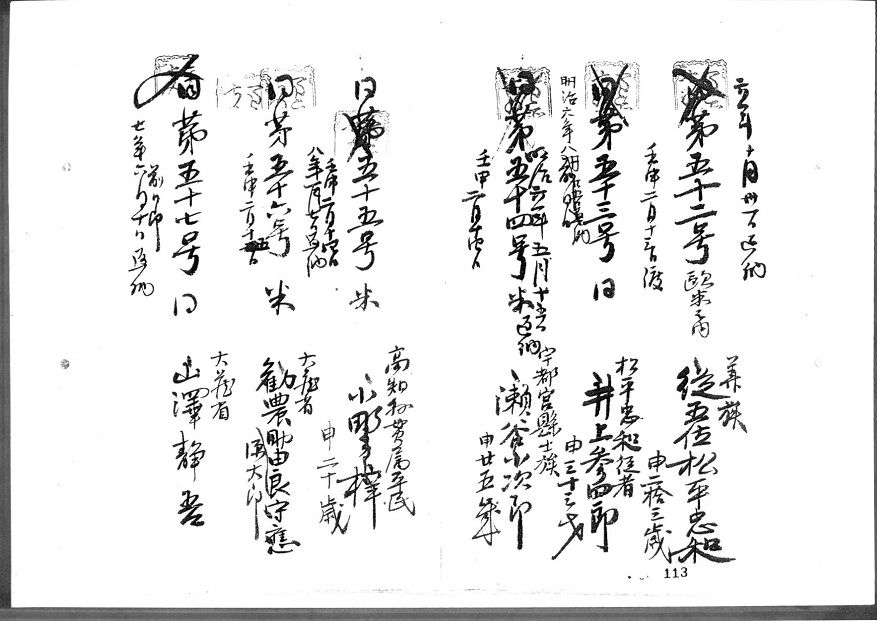 六年十月卅一日返納
第五十二号 歐米各国
壬申二月十三日渡
華族
従五位松平忠和
申二拾三歳
同第五十三号 同
明治六年八月
松平忠和従者
井上参四郎
申三十三才
同第五十四号 米
明治六年五月十五日返納
壬申二月十四日
宇都宮縣士族
瀬谷小次郎
申廿五年
同第五十五号 米
壬申二月十四日
八年一月七日返納
高知縣貫属平民
小野梓
申二十歳
同第五十六号 米
壬申二月十五日
大蔵省
勧農助由良守應
源太郎
同第五十七号 同
七年六月十日返納
大蔵省
山澤静吾
113